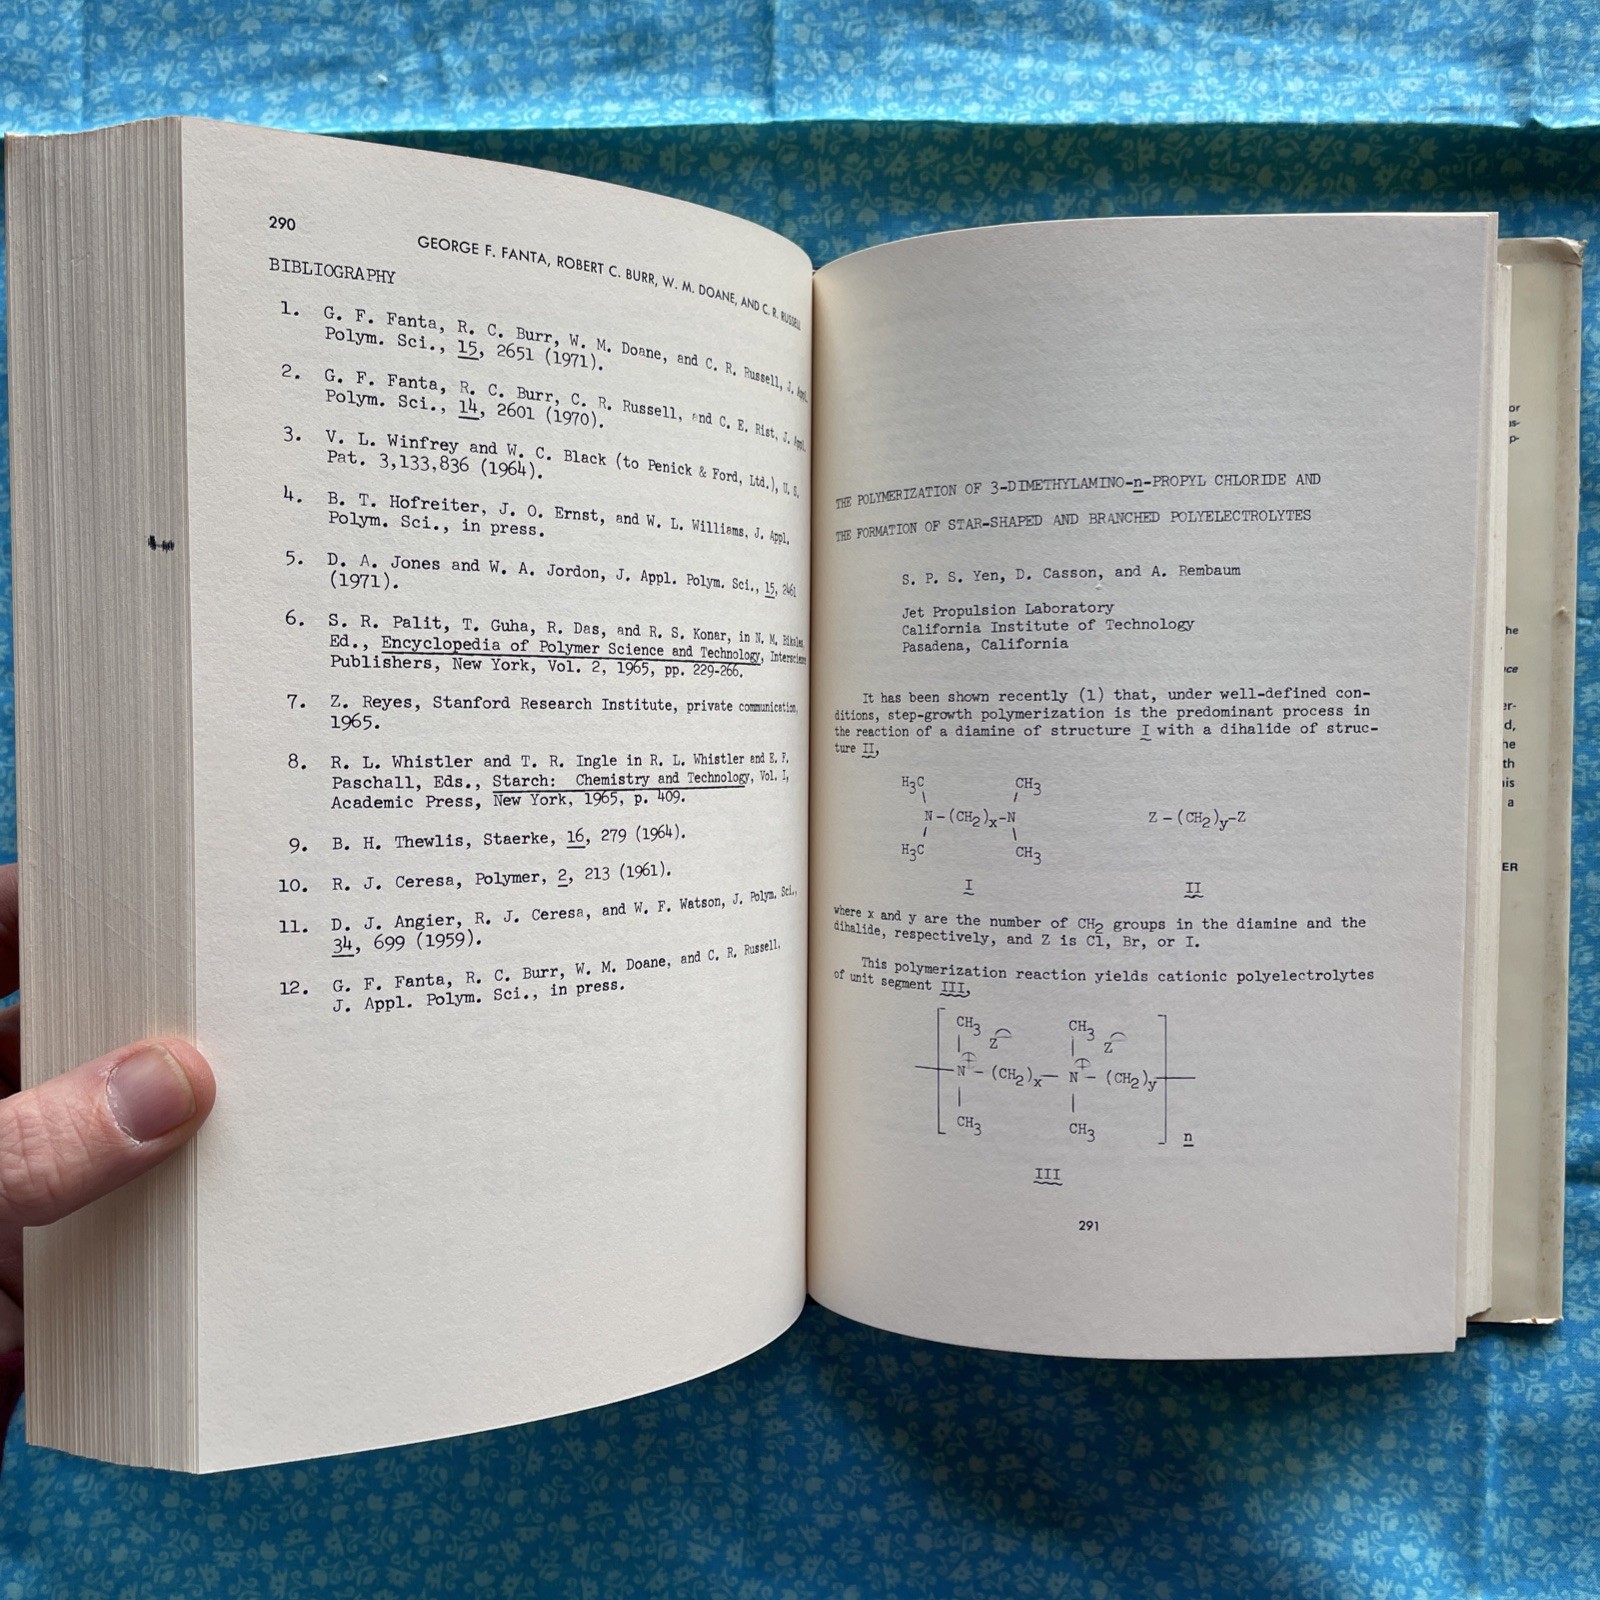 290
GEORGE F. FANTA, ROBERT C. BURR, W. M. DOANE, AND C. R. RUSSELL
BIBLIOGRAPHY
1. G. F. Fanta, R. C. Burr, W. M. Doane, and C. R. Russell, J. Appl.
Polym. Sci., 15, 2651 (1971).
2. G. F. Fanta, R. C. Burr, C. R. Russell, and C. E. Rist, J. Appl.
Polym. Sci., 14, 2601 (1970).
3. V. L. Winfrey and W. C. Black (to Penick & Ford, Ltd.), U. S.
Pat. 3,133,836 (1964).
4. B. T. Hofreiter, J. O. Ernst, and W. L. Williams, J. Appl.
Polym. Sci., in press.
5. D. A. Jones and W. A. Jordon, J. Appl. Polym. Sci., 15, 2461
(1971).
6. S. R. Palit, T. Guha, R. Das, and R. S. Konar, in N. M. Bikales,
Ed., Encyclopedia of Polymer Science and Technology, Interscience
Publishers, New York, Vol. 2, 1965, pp. 229-266.
7. Z. Reyes, Stanford Research Institute, private communication,
1965.
8. R. L. Whistler and T. R. Ingle in R. L. Whistler and E. F.
Paschall, Eds., Starch: Chemistry and Technology, Vol. I,
Academic Press, New York, 1965, p. 409.
9. B. H. Thewlis, Staerke, 16, 279 (1964).
10. R. J. Ceresa, Polymer, 2, 213 (1961).
11. D. J. Angier, R. J. Ceresa, and W. F. Watson, J. Polym. Sci.,
34, 699 (1959).
12. G. F. Fanta, R. C. Burr, W. M. Doane, and C. R. Russell,
J. Appl. Polym. Sci., in press.
THE POLYMERIZATION OF 3-DIMETHYLAMINO-n-PROPYL CHLORIDE AND
THE FORMATION OF STAR-SHAPED AND BRANCHED POLYELECTROLYTES
S. P. S. Yen, D. Casson, and A. Rembaum
Jet Propulsion Laboratory
California Institute of Technology
Pasadena, California
It has been shown recently (1) that, under well-defined con-
ditions, step-growth polymerization is the predominant process in
the reaction of a diamine of structure I with a dihalide of struc-
ture II,
H3C CH3
N-(CH2)x-N Z-(CH2)y-Z
H3C CH3
I II
where x and y are the number of CH2 groups in the diamine and the
dihalide, respectively, and Z is Cl, Br, or I.
This polymerization reaction yields cationic polyelectrolytes
of unit segment III,
CH3 Z⊖ CH3 Z⊖
N⊕-(CH2)x-N⊕-(CH2)y
CH3 CH3 n
III
291
or
is-
p-
he
ce
er-
d,
he
th
is
a
ER